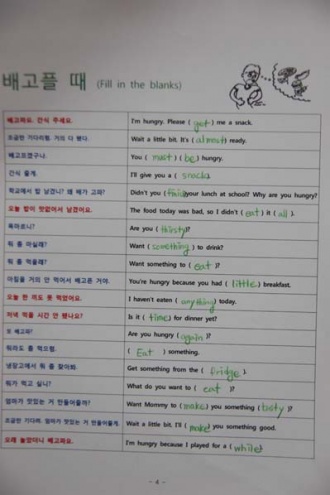 배고플 때 (Fill in the blanks)
배고파요. 간식 주세요. I'm hungry. Please ( get ) me a snack.
조금만 기다리렴. 거의 다 됐다. Wait a little bit. It's ( almost ) ready.
배고프겠구나. You ( must ) ( be ) hungry.
간식 줄게. I'll give you a ( snack ).
학교에서 밥 남겼니? 왜 배가 고파? Didn't you ( finish ) your lunch at school? Why are you hungry?
오늘 밥이 맛없어서 남겼어요. The food today was bad, so I didn't ( eat ) it ( all ).
목마르니? Are you ( thirsty )?
뭐 좀 마실래? Want ( something ) to drink?
뭐 좀 먹을래? Want something to ( eat )?
아침을 거의 안 먹어서 배고픈 거야. You're hungry because you had ( little ) breakfast.
오늘 한 끼도 못 먹었어요. I haven't eaten ( anything ) today.
저녁 먹을 시간 안 됐나요? Is it ( time ) for dinner yet?
또 배고파? Are you hungry ( again )?
뭐라도 좀 먹으렴. ( Eat ) something.
냉장고에서 뭐 좀 찾아봐. Get something from the ( fridge ).
뭐가 먹고 싶니? What do you want to ( eat )?
엄마가 맛있는 거 만들어줄까? Want Mommy to ( make ) you something ( tasty )?
조금만 기다려. 엄마가 맛있는 거 만들어줄게. Wait a little bit. I'll ( make ) you something good.
오래 놀았더니 배고파요. I'm hungry because I played for a ( while )
- 4 -